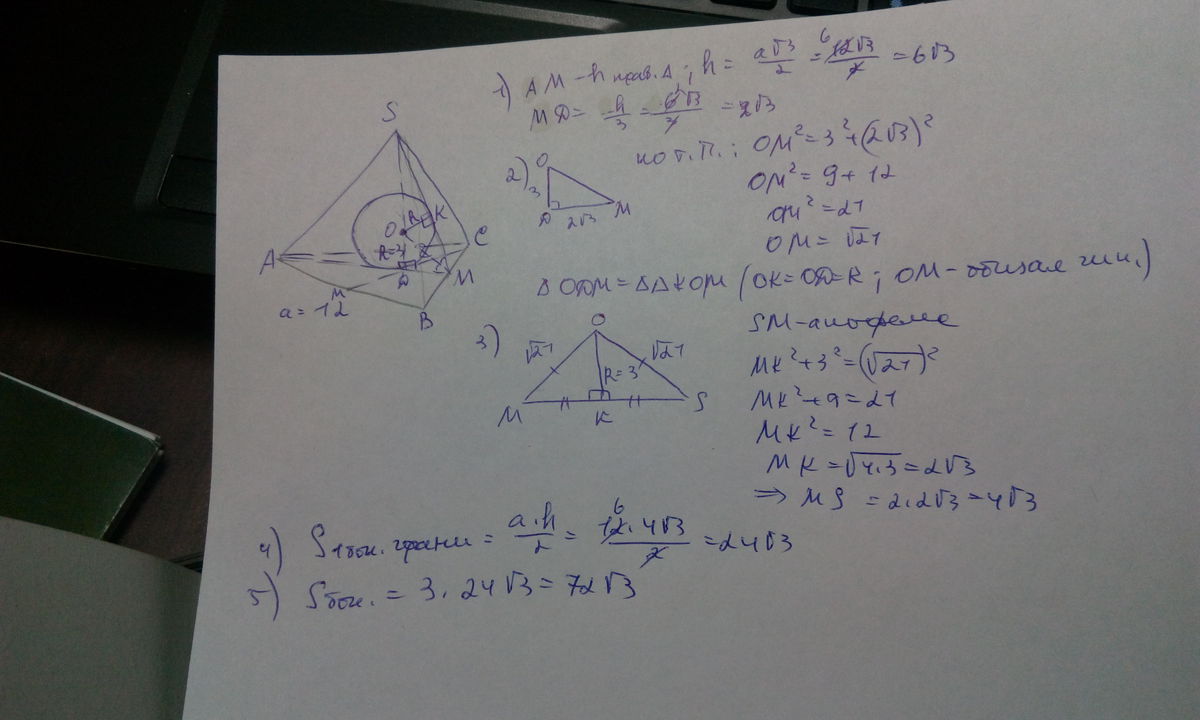 1) AM - h прав. Δ; h = a√3/2 = 12√3/2 = 6√3
6
MD = h/3 = 6√3/3 = 2√3
2)
O
3
D
2√3
M
по т.П.: OM² = 3² + (2√3)²
OM² = 9 + 12
OM² = 21
OM = √21
S
O
R
K
R=3
A
D
M
C
B
a = 12
Δ ODM = ΔΔ KOM (OK = OD = R; OM - общая гип.)
3)
O
√21
√21
R=3
M
K
S
SM - апофема
MK² + 3² = (√21)²
MK² + 9 = 21
MK² = 12
MK = √4·3 = 2√3
⇒ MS = 2·2√3 = 4√3
4) S1бок. грани = a·h/2 = 12·4√3/2 = 24√3
6
5) Sбок. = 3·24√3 = 72√3